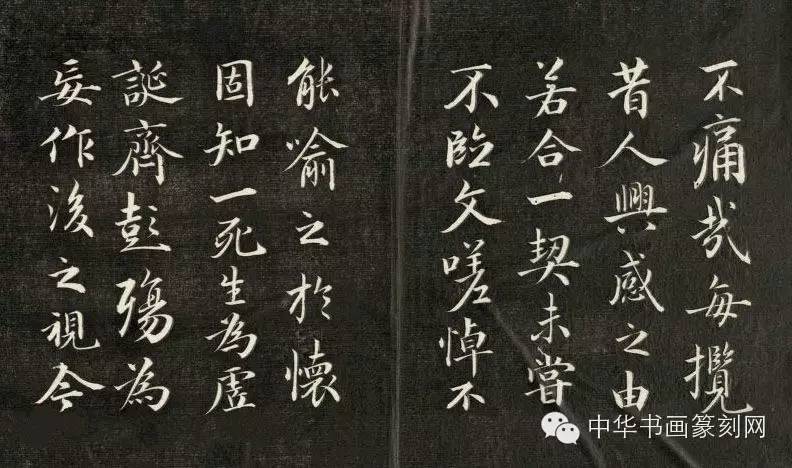 不痛哉每攬
昔人興感之由
若合一契未嘗
不臨文嗟悼不
能喻之於懷
固知一死生為虛
誕齊彭殤為
妄作後之視今
中华书画篆刻网